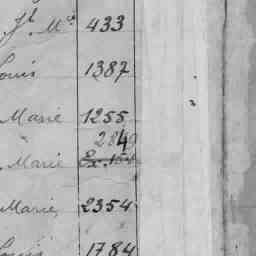 Jh Md 433
Louis 1387
Marie 1255
2849
Marie
Marie 2354
Louis 1784